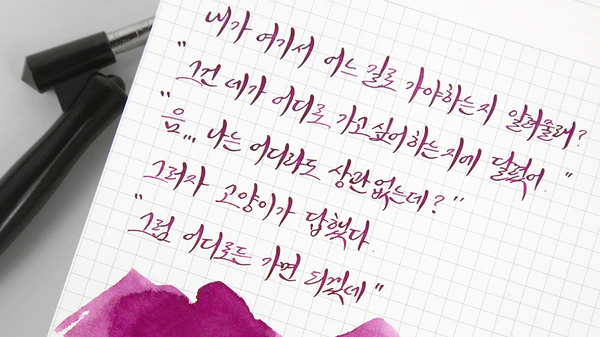 내가 여기서 어느 길로 가야하는지 알려줄래?
"그건 네가 어디로 가고싶어하는지에 달렸어."
"음... 나는 어디라도 상관없는데?"
그러자 고양이가 답했다.
"그럼 어디로든 가면 되겠네"